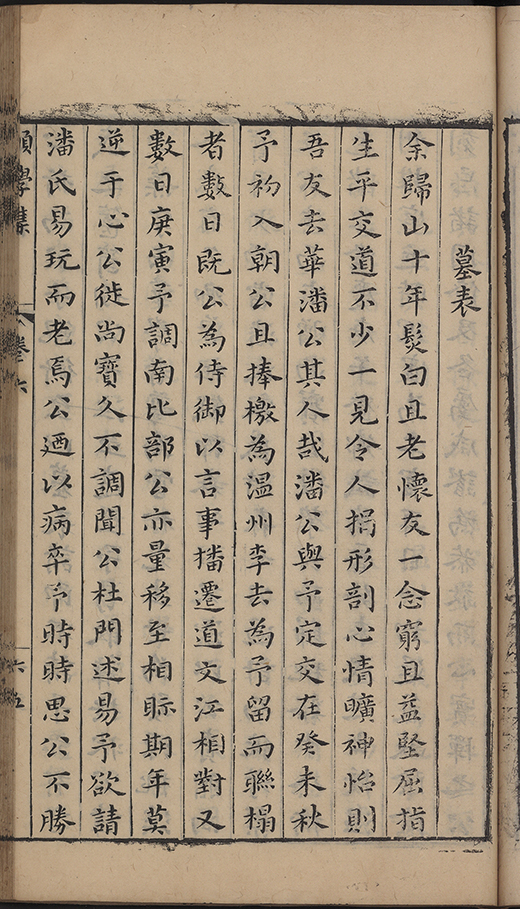 墓表
余歸山十年髮白且老懷友一念窮且益堅屈指
生平交道不少一見令人捐形剖心情曠神怡則
吾友去華潘公其人哉潘公與予定交在癸未秋
予初入朝公且捧檄為温州李去為予留而聯榻
者數日既公為侍御以言事播遷道文江相對又
數日庚寅予調南比部公亦量移至相眎期年莫
逆于心公徙尚寶久不調聞公杜門述易予欲請
潘氏易玩而老焉公廼以病卒予時時思公不勝
願學集 卷六 六五